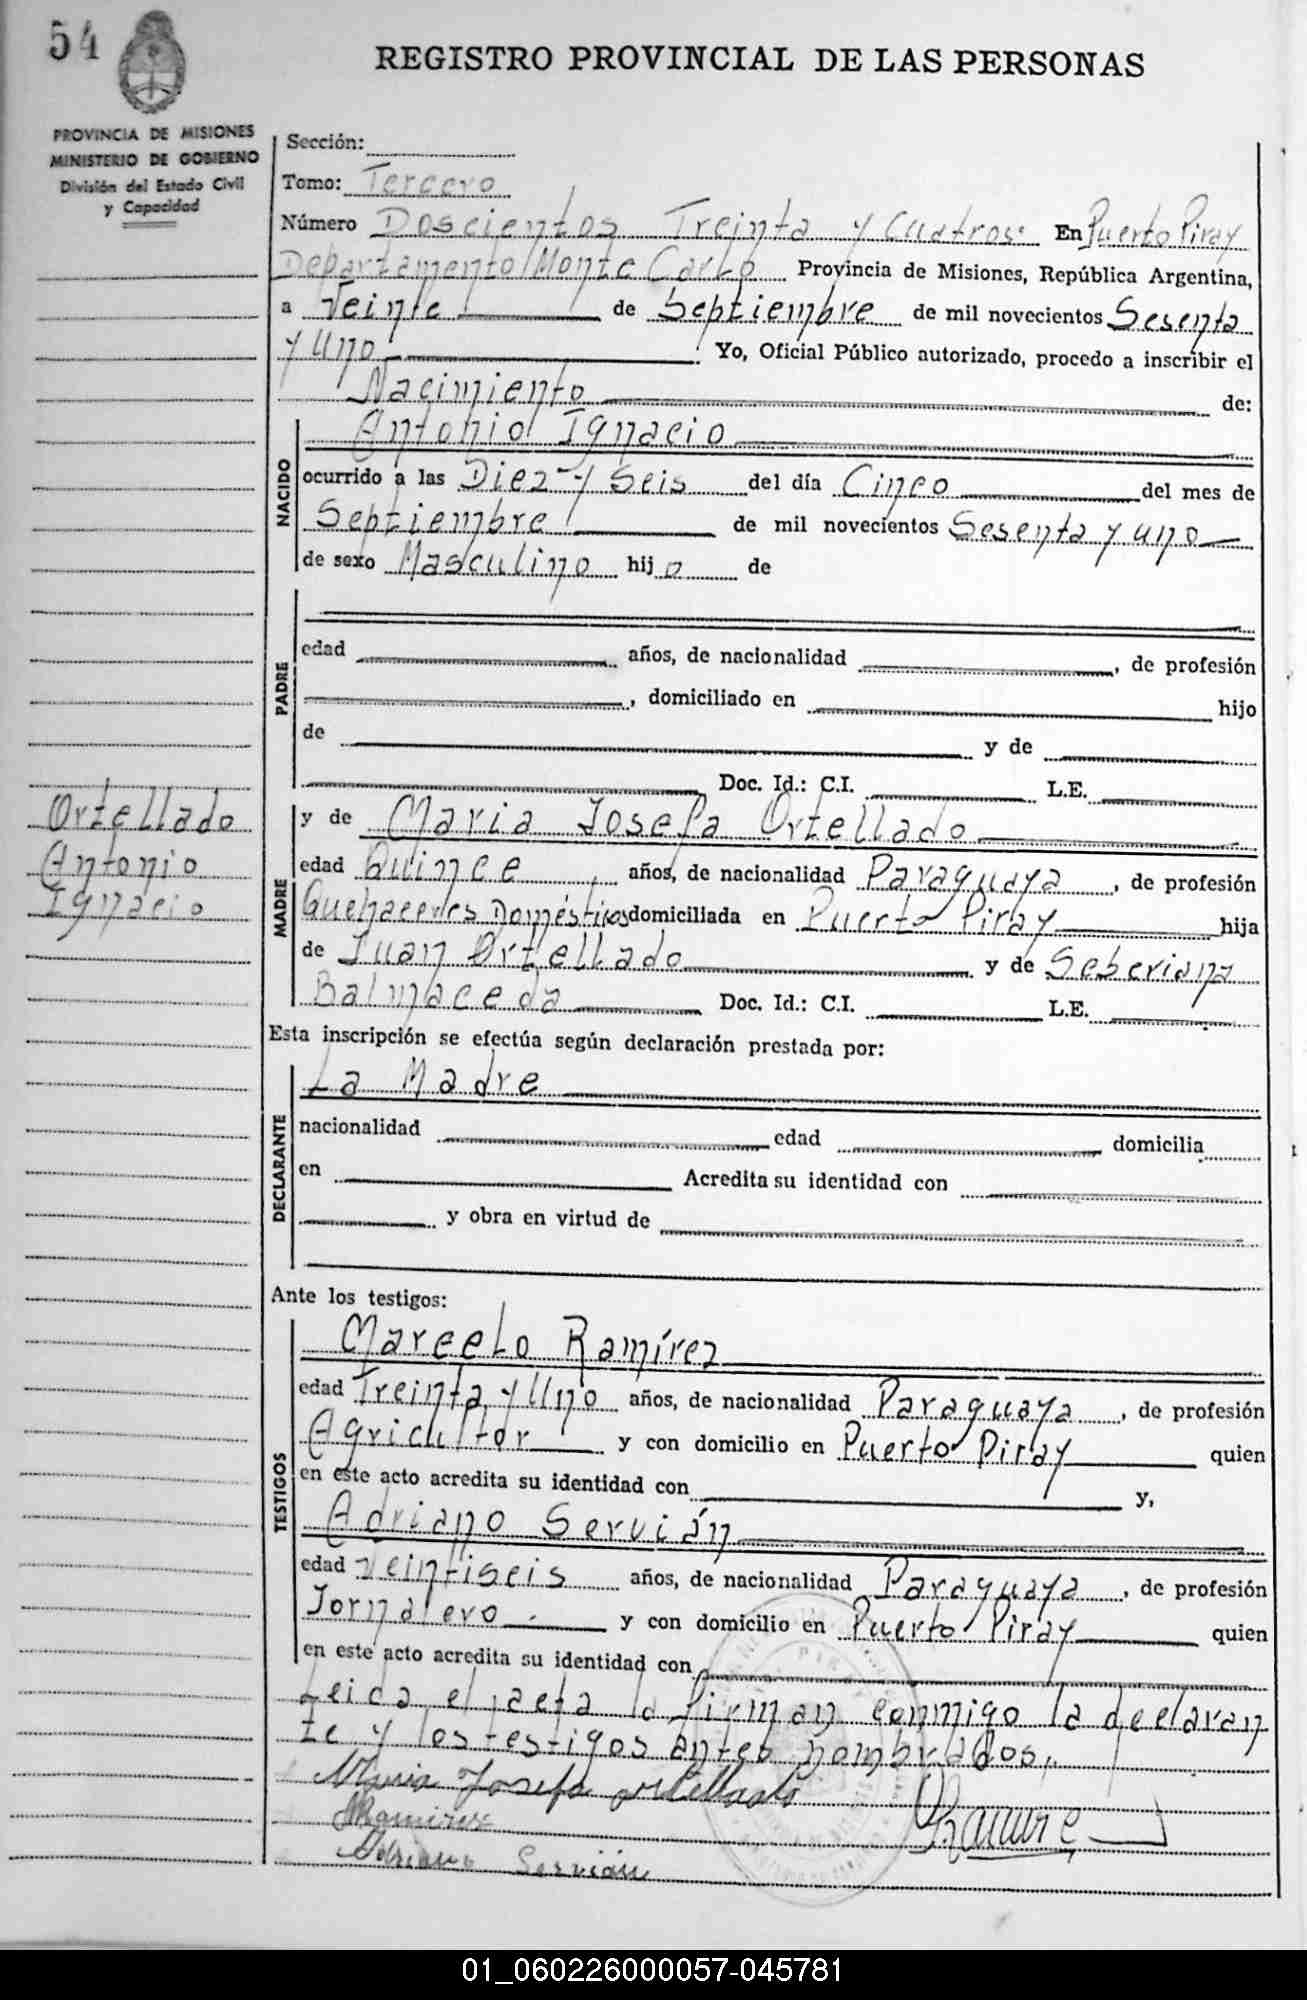 54
REGISTRO PROVINCIAL DE LAS PERSONAS
PROVINCIA DE MISIONES
MINISTERIO DE GOBIERNO
División del Estado Civil
y Capacidad
Sección:
Tomo: Tercero
Número Doscientos Treinta y Cuatros En Puerto Piray
Departamento Monte Carlo Provincia de Misiones, República Argentina,
a Veinte de Septiembre de mil novecientos Sesenta
y Uno Yo, Oficial Público autorizado, procedo a inscribir el
Nacimiento de:
NACIDO
Antonio Ignacio
ocurrido a las Diez y Seis del día Cinco del mes de
Septiembre de mil novecientos Sesenta y uno
de sexo Masculino hijo de
PADRE
edad años, de nacionalidad , de profesión
, domiciliado en hijo
de y de
Doc. Id.: C.I. L.E.
Ortellado
Antonio
Ignacio
MADRE
y de Maria Josefa Ortellado
edad Quince años, de nacionalidad Paraguaya , de profesión
Quehaceres Domésticos domiciliada en Puerto Piray hija
de Juan Ortellado y de Seberiana
Balmaceda Doc. Id.: C.I. L.E.
Esta inscripción se efectúa según declaración prestada por:
DECLARANTE
La Madre
nacionalidad edad domicilia
en Acredita su identidad con
y obra en virtud de
Ante los testigos:
TESTIGOS
Marcelo Ramírez
edad Treinta y Uno años, de nacionalidad Paraguaya , de profesión
Agricultor y con domicilio en Puerto Piray quien
en este acto acredita su identidad con y,
Adriano Servián
edad Veintiseis años, de nacionalidad Paraguaya , de profesión
Jornalero . y con domicilio en Puerto Piray quien
en este acto acredita su identidad con
Leida el acta la firman conmigo la declaran
te y los testigos antes nombrados.
Maria Josefa Ortellado
MRamirez
Adriano Servián
01_060226000057-045781